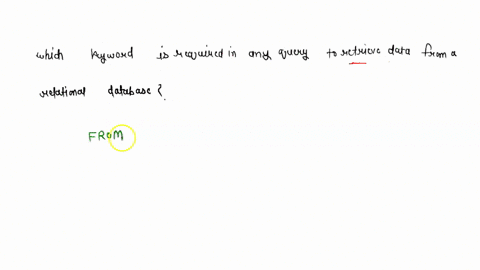 which keyword is required in any query to retrieve data from a
relational database?
FROM